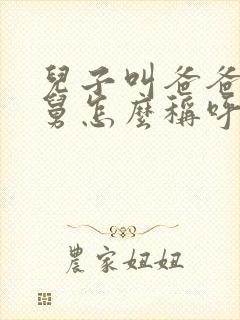 兒子叫爸爸
舅怎麼稱呼
農家妞妞